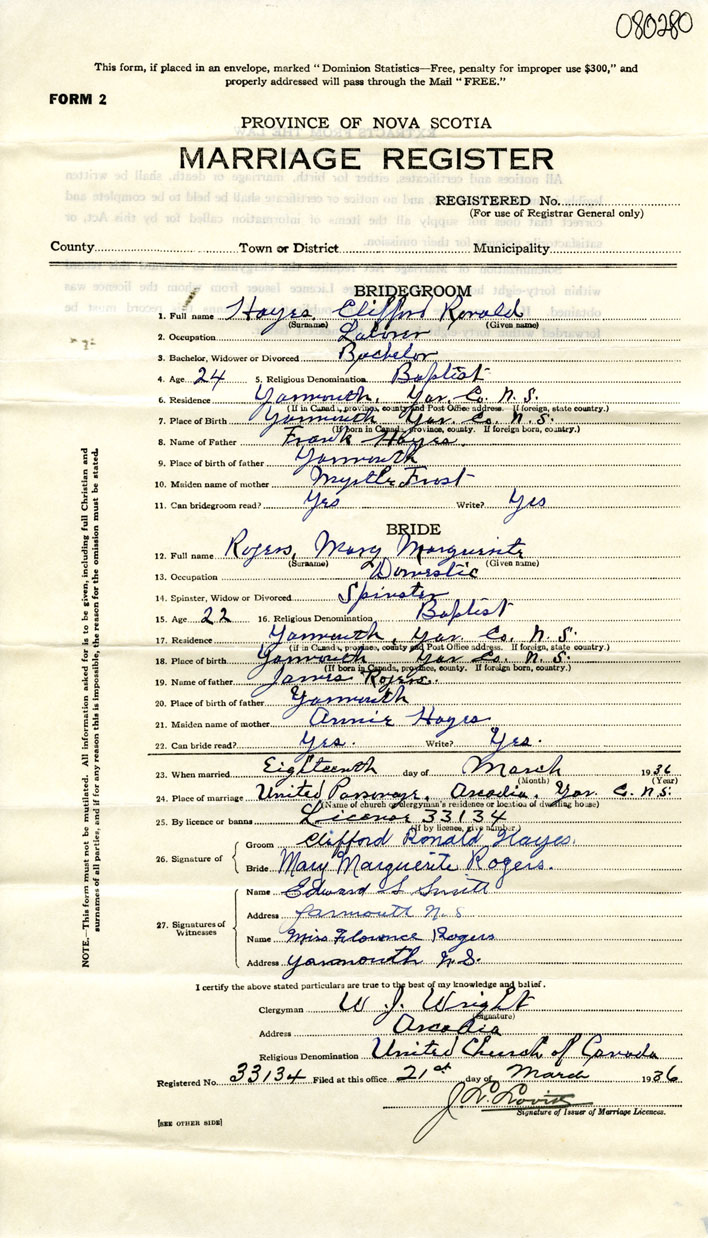 080280
This form, if placed in an envelope, marked "Dominion Statistics—Free, penalty for improper use $300," and
properly addressed will pass through the Mail "FREE."
FORM 2
PROVINCE OF NOVA SCOTIA
MARRIAGE REGISTER
REGISTERED No.
(For use of Registrar General only)
County Town or District Municipality
BRIDEGROOM
1. Full name Hayes, Clifford Ronald
(Surname) (Given name)
2. Occupation Laborer
3. Bachelor, Widower or Divorced Bachelor
4. Age 24 5. Religious Denomination Baptist
6. Residence Yarmouth, Yar. Co. N.S.
(If in Canada, province, county and Post Office address. If foreign, state country.)
7. Place of Birth Yarmouth Yar. Co. N.S.
(If born in Canada, province, county. If foreign born, country.)
8. Name of Father Frank Hayes.
9. Place of birth of father Yarmouth
10. Maiden name of mother Myrtle Frost
11. Can bridegroom read? Yes Write? Yes
BRIDE
12. Full name Rogers, Mary Marguerite
(Surname) (Given name)
13. Occupation Domestic
14. Spinster, Widow or Divorced Spinster
15. Age 22 16. Religious Denomination Baptist
17. Residence Yarmouth, Yar. Co. N.S.
(if in Canada, province, county and Post Office address. If foreign, state country.)
18. Place of birth Yarmouth Yar Co. N.S.
(If born in Canada, province, county. If foreign born, country.)
19. Name of father James Rogers.
20. Place of birth of father Yarmouth
21. Maiden name of mother Annie Hayes
22. Can bride read? Yes. Write? Yes.
23. When married Eighteenth day of March 1936
(Month) (Year)
24. Place of marriage United Parsonage, Arcadia, Yar. C. N.S.
(Name of church or clergyman's residence or location of dwelling house)
25. By licence or banns License 33134
(If by licence, give number)
26. Signature of
Groom Clifford Ronald Hayes.
Bride Mary Marguerite Rogers.
27. Signatures of Witnesses
Name Edward S Smith
Address Yarmouth N.S
Name Miss Florence Rogers
Address Yarmouth N.S.
I certify the above stated particulars are true to the best of my knowledge and belief.
Clergyman W. J. Wright
(Signature)
Address Arcadia
Religious Denomination United Church of Canada
Registered No. 33134 Filed at this office 21st day of March 1936
J. L. Lovitt
Signature of Issuer of Marriage Licences.
[SEE OTHER SIDE]
NOTE.—This form must not be mutilated. All information asked for is to be given, including full Christian and
surnames of all parties, and if for any reason this is impossible, the reason for the omission must be stated.